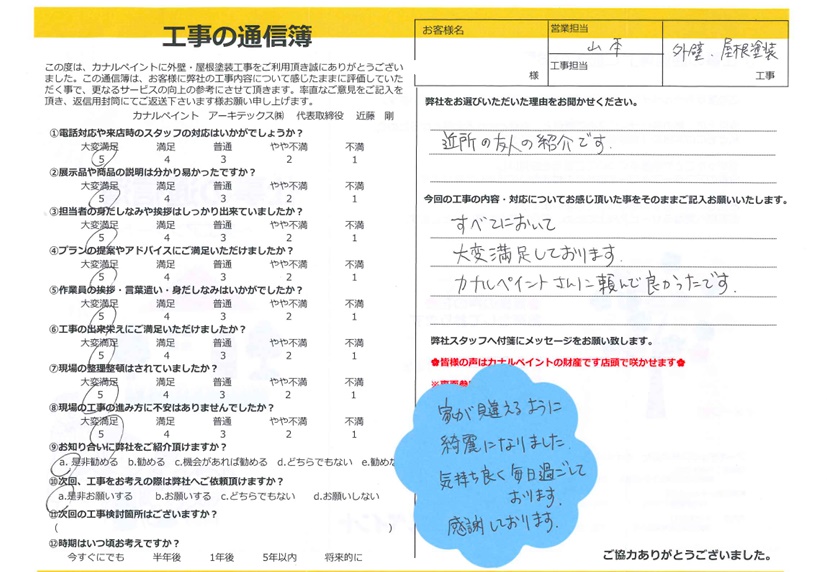 工事の通信簿
この度は、カナルペイントに外壁・屋根塗装工事をご利用頂き誠にありがとうござい
ました。この通信簿は、お客様に弊社の工事内容について感じたままに評価していた
だく事で、更なるサービスの向上の参考にさせて頂きます。率直なご意見をご記入を
頂き、返信用封筒にてご返送下さいます様お願い申し上げます。
カナルペイント アーキテックス㈱ 代表取締役 近藤 剛
①電話対応や来店時のスタッフの対応はいかがでしょうか?
大変満足 満足 普通 やや不満 不満
5 4 3 2 1
②展示品や商品の説明は分かり易かったですか?
大変満足 満足 普通 やや不満 不満
5 4 3 2 1
③担当者の身だしなみや挨拶はしっかり出来ていましたか?
大変満足 満足 普通 やや不満 不満
5 4 3 2 1
④プランの提案やアドバイスにご満足いただけましたか?
大変満足 満足 普通 やや不満 不満
5 4 3 2 1
⑤作業員の挨拶・言葉遣い・身だしなみはいかがでしたか?
大変満足 満足 普通 やや不満 不満
5 4 3 2 1
⑥工事の出来栄えにご満足いただけましたか?
大変満足 満足 普通 やや不満 不満
5 4 3 2 1
⑦現場の整理整頓はされていましたか?
大変満足 満足 普通 やや不満 不満
5 4 3 2 1
⑧現場の工事の進み方に不安はありませんでしたか?
大変満足 満足 普通 やや不満 不満
5 4 3 2 1
⑨お知り合いに弊社をご紹介頂けますか?
a. 是非勧める b.勧める c.機会があれば勧める d.どちらでもない e.勧めな
⑩次回、工事をお考えの際は弊社へご依頼頂けますか?
a.是非お願いする b.お願いする c.どちらでもない d.お願いしない
⑪次回の工事検討箇所はございますか?
( )
⑫時期はいつ頃お考えですか?
今すぐにでも 半年後 1年後 5年以内 将来的に
お客様名
様
営業担当
山本
工事担当
外壁、屋根塗装
工事
弊社をお選びいただいた理由をお聞かせください。
近所の友人の紹介です.
今回の工事の内容・対応についてお感じ頂いた事をそのままご記入お願いいたします。
すべてにおいて
大変満足しております.
カナルペイントさんに頼んで良かったです.
弊社スタッフへ付箋にメッセージをお願い致します。
✿皆様の声はカナルペイントの財産です店頭で咲かせます✿
家が見違えるように
綺麗になりました.
気持ち良く毎日過ごして
おります.
感謝しております.
ご協力ありがとうございました。